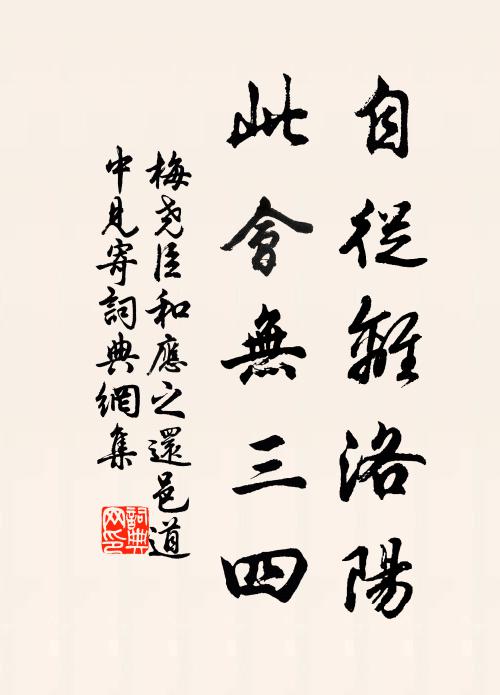 自從離洛陽
此會無三四
梅堯臣和應之還邑道
中見寄詞典網集
詞典
网印